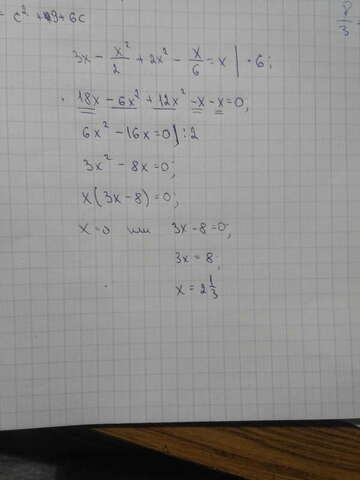 = c² + 49 + 6c
8/3
3x - x²/2 + 2x² - x/6 = x | · 6;
18x - 6x² + 12x² - x - x = 0,
6x² - 16x = 0) : 2
3x² - 8x = 0;
x(3x - 8) = 0;
x = 0 или 3x - 8 = 0;
3x = 8;
x = 2 1/3